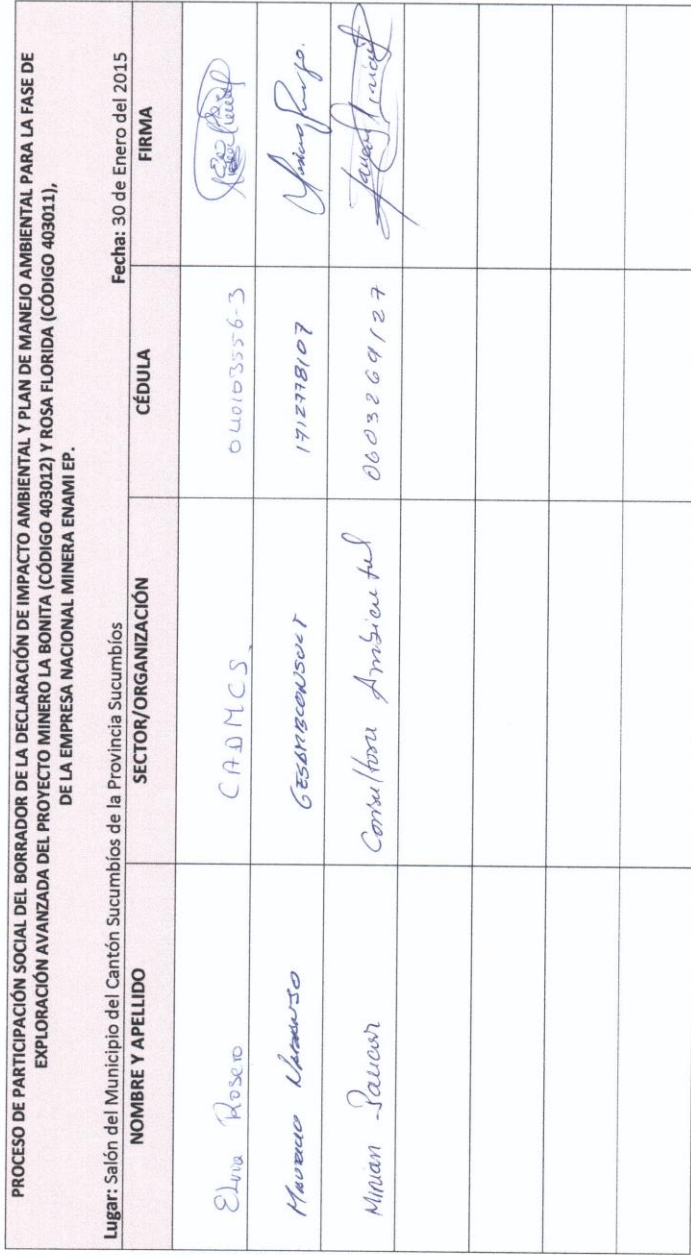 PROCESO DE PARTICIPACIÓN SOCIAL DEL BORRADOR DE LA DECLARACIÓN DE IMPACTO AMBIENTAL Y PLAN DE MANEJO AMBIENTAL PARA LA FASE DE
EXPLORACIÓN AVANZADA DEL PROYECTO MINERO LA BONITA (CÓDIGO 403012) Y ROSA FLORIDA (CÓDIGO 403011),
DE LA EMPRESA NACIONAL MINERA ENAMI EP.
Lugar: Salón del Municipio del Cantón Sucumbíos de la Provincia Sucumbíos Fecha: 30 de Enero del 2015
NOMBRE Y APELLIDO SECTOR/ORGANIZACIÓN CÉDULA FIRMA
Elvia Rosero 040103556-3
Mauricio Naranjo 1712778107
Mirian Paucar Consultora Ambiental 0603269127